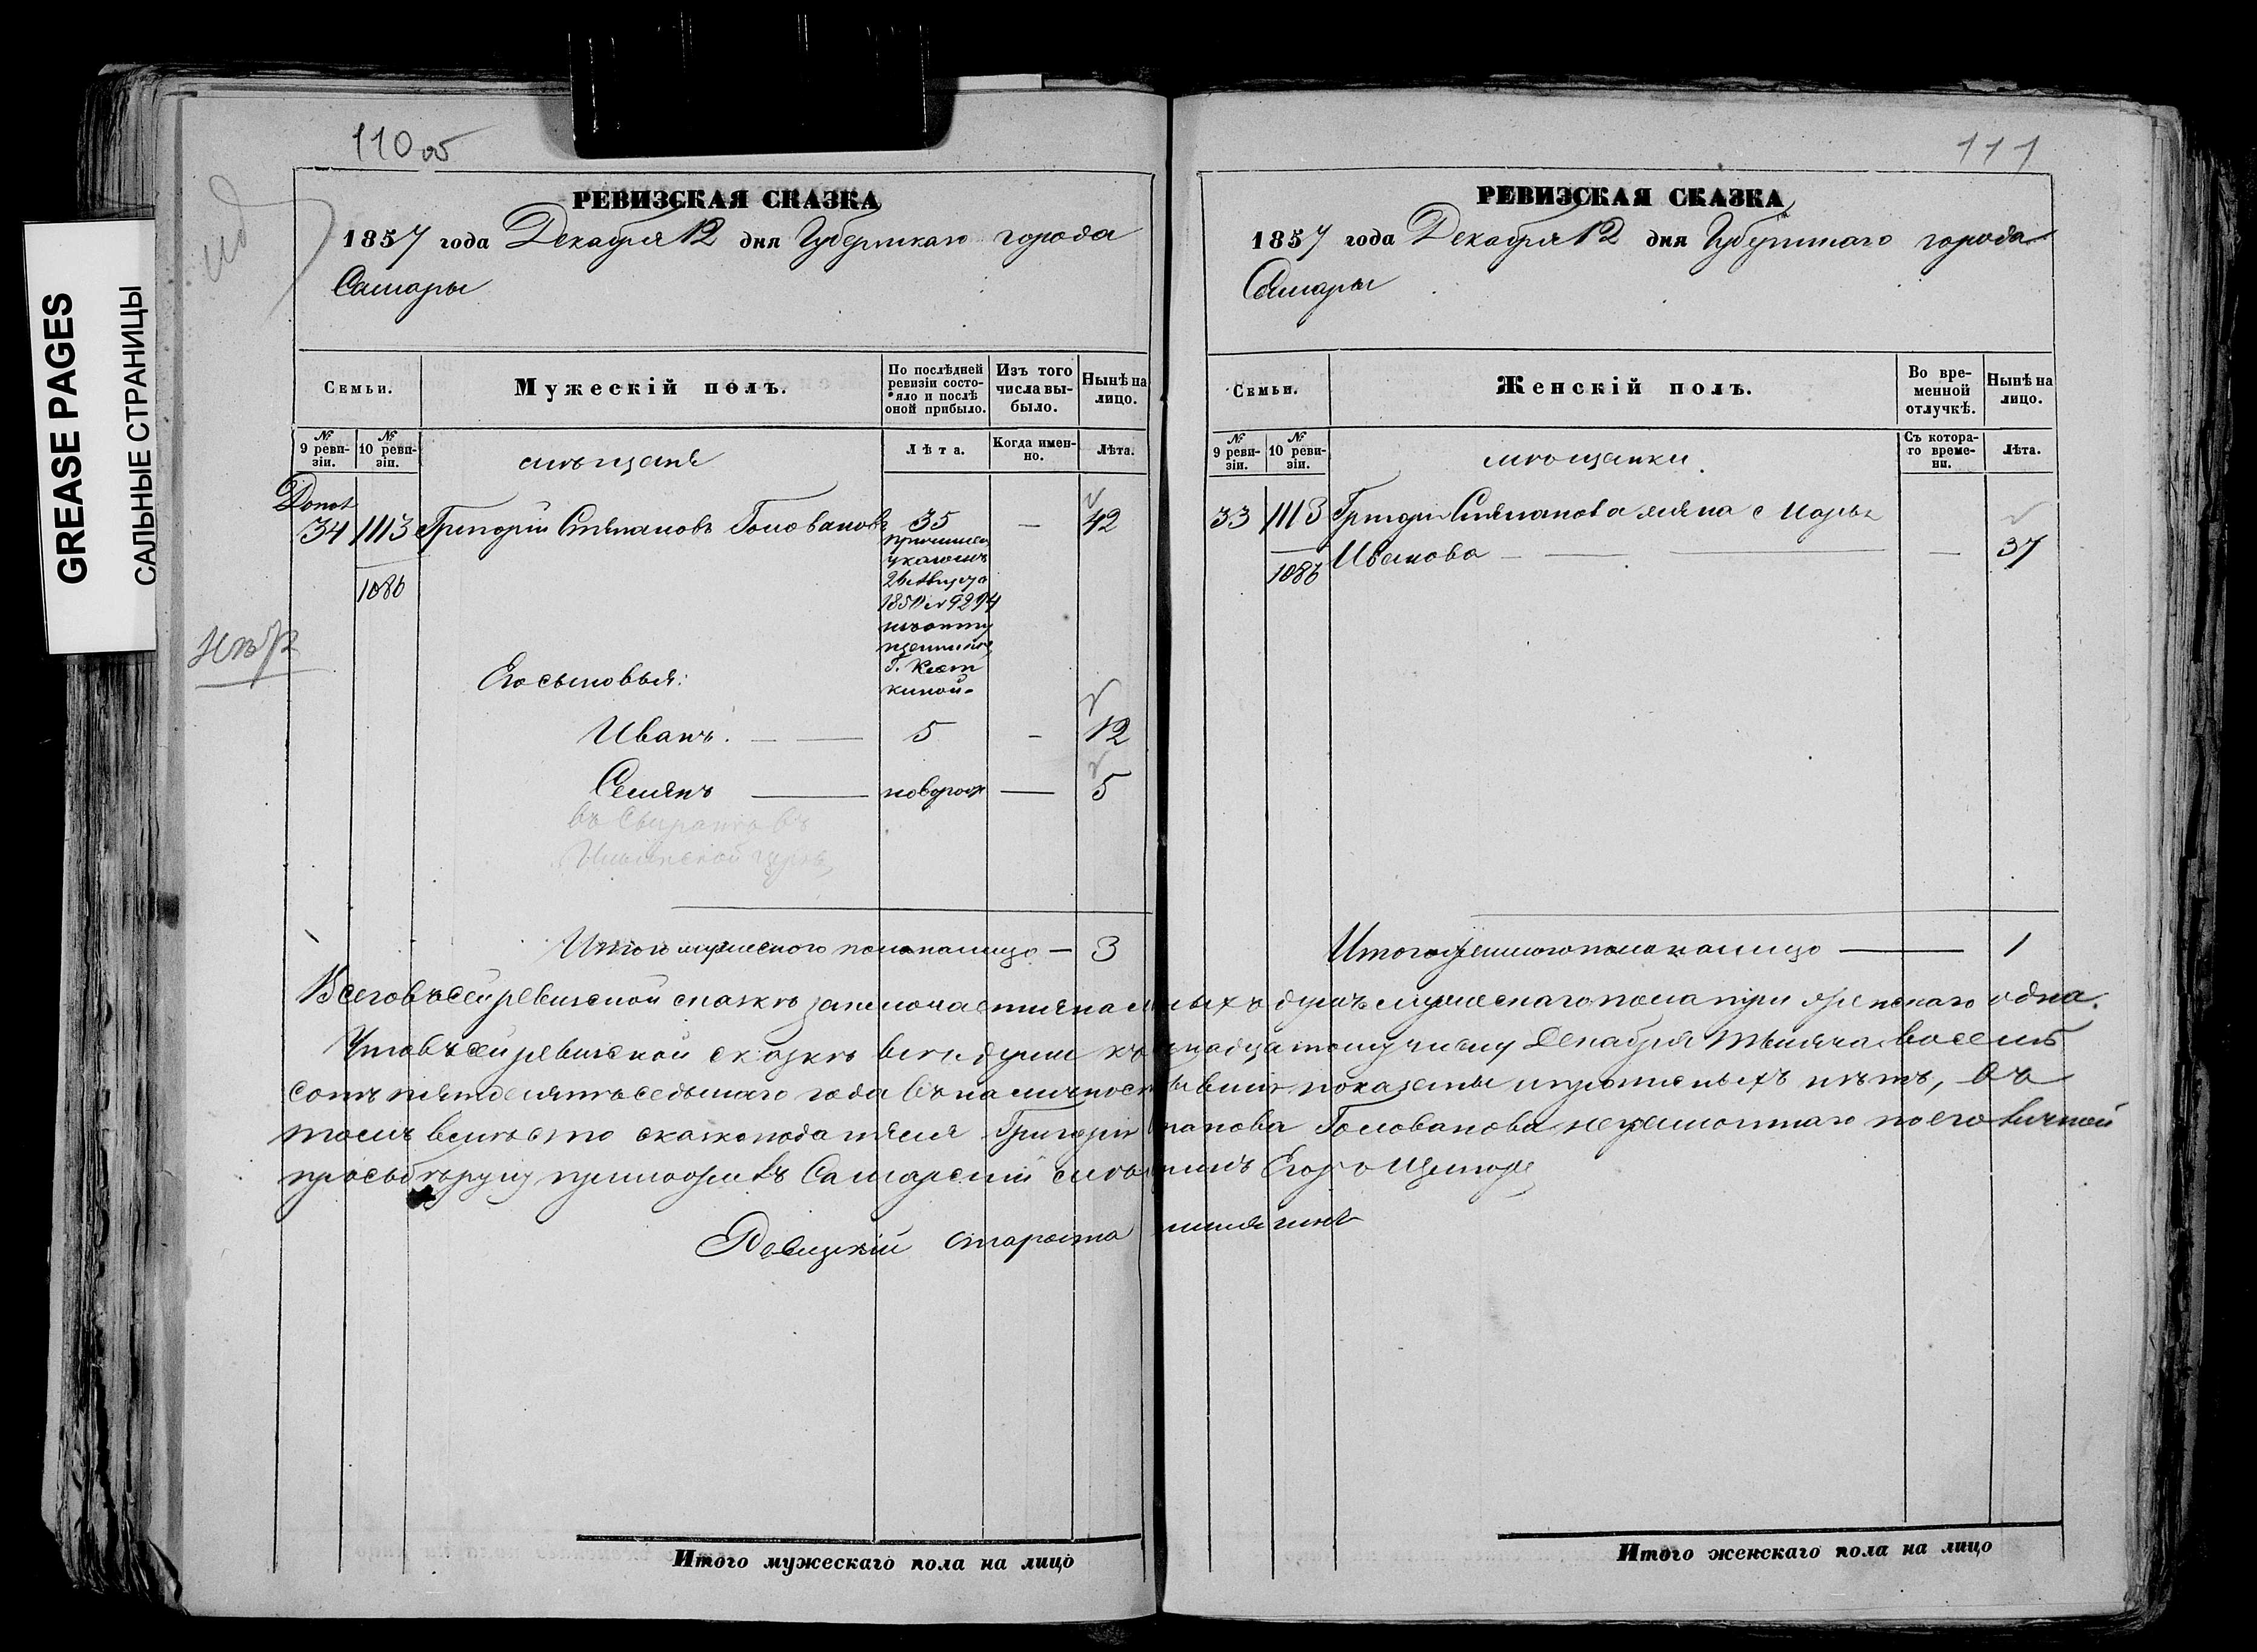 GREASE PAGES
САЛЬНЫЕ СТРАНИЦЫ
110 об
РЕВИЗСКАЯ СКАЗКА
1857 года Декабря 12 дня Губернскаго города
Самары
Семьи.
Мужескій полъ.
По послѣдней ревизіи состояло и послѣ оной прибыло.
Изъ того числа выбыло.
Нынѣ на лицо.
№ 9 ревизіи.
№ 10 ревизіи.
мѣщане
Лѣта.
Когда именно.
Лѣта.
34 1113 Григорій Степановъ Головановъ 35 — 42
1086
причислен
указомъ
24 Августа
1851 № 9294
Его сыновья:
Иванъ. — — 5 — 12
Семенъ — новорож — 5
въ Сызранѣ въ
Ильинской церкв
Итого мужескаго пола на лицо — 3
111
РЕВИЗСКАЯ СКАЗКА
1857 года Декабря 12 дня Губернскаго города
Самары
Семьи.
Женскій полъ.
Во временной отлучкѣ.
Нынѣ на лицо.
№ 9 ревизіи.
№ 10 ревизіи.
мѣщанки.
Съ котораго времени.
Лѣта.
33 1113 Григорія Степанова жена Марья
1086 Иванова — — — — 37
Итого женскаго пола на лицо — 1
Всего въ сей ревизской сказкѣ заключается наличныхъ душъ мужескаго пола три женскаго одна.
Что въ сей ревизской сказкѣ всѣ души къ надцатому числу Декабря тысяча восемь
сотъ пятьдесятъ седьмаго года въ наличности бывшія показаны и прописныхъ нѣтъ, въ
томъ вмѣсто сказкоподателя Григорія Степанова Голованова неграмотнаго по его личной
просьбѣ руку приложилъ Самарскій мѣщанинъ Егоръ
староста
Итого мужескаго пола на лицо
Итого женскаго пола на лицо